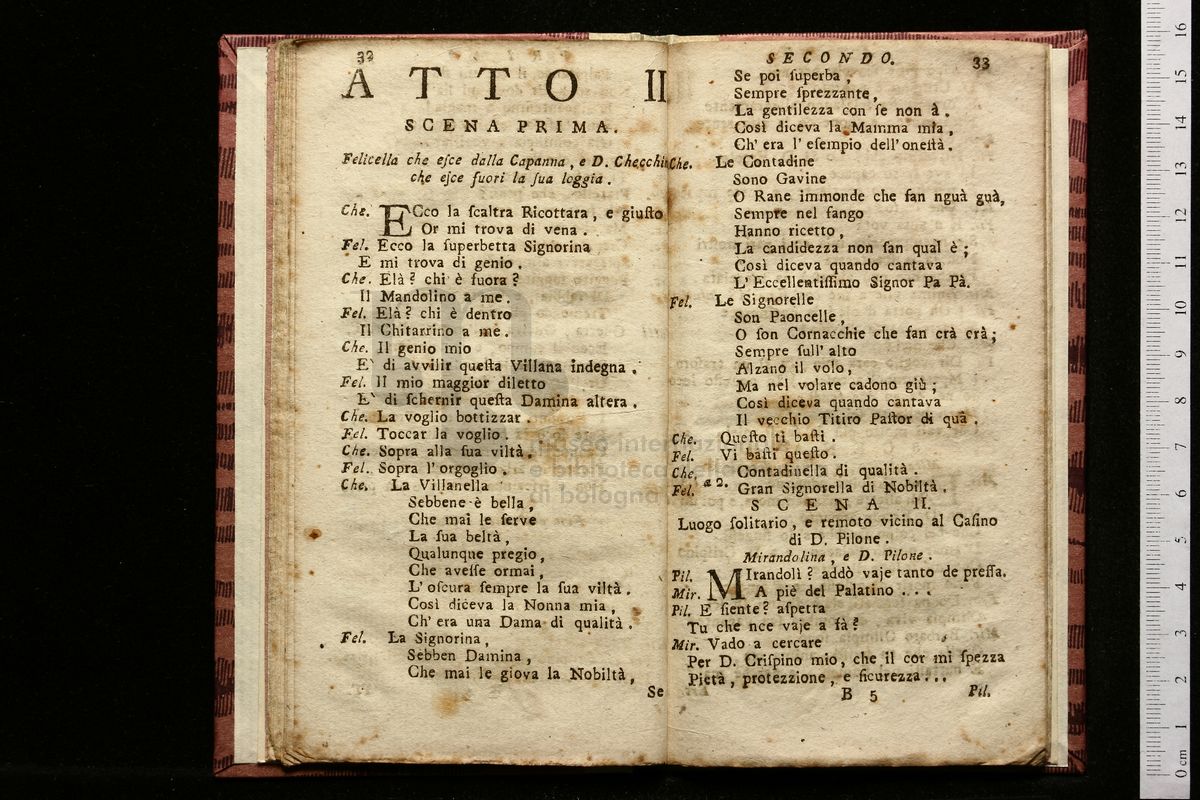 32
ATTO II
SCENA PRIMA.
Felicella che eſce dalla Capanna, e D. Checchin
che eſce fuori la ſua loggia.
Che. ECco la ſcaltra Ricottara, e giuſto
Or mi trova di vena.
Fel. Ecco la ſuperbetta Signorina
E mi trova di genio.
Che. Elà? chi è fuora?
Il Mandolino a me.
Fel. Elà? chi è dentro
Il Chitarrino a me.
Che. Il genio mio
E` di avvilir queſta Villana indegna.
Fel. Il mio maggior diletto
E` di ſchernir queſta Damina altera.
Che. La voglio bottizzar.
Fel. Toccar la voglio.
Che. Sopra alla ſua viltà.
Fel. Sopra l'orgoglio.
Che. La Villanella
Sebbene è bella,
Che mai le ſerve
La ſua beltà,
Qualunque pregio,
Che aveſſe ormai,
L'oſcura ſempre la ſua viltà.
Così diceva la Nonna mia,
Ch'era una Dama di qualità.
Fel. La Signorina,
Sebben Damina,
Che mai le giova la Nobiltà,
Se
SECONDO. 33
Se poi ſuperba,
Sempre ſprezzante,
La gentilezza con ſe non à.
Così diceva la Mamma mia,
Ch'era l'eſempio dell'oneſtà.
Che. Le Contadine
Sono Gavine
O Rane immonde che fan nguà guà,
Sempre nel fango
Hanno ricetto,
La candidezza non ſan qual è;
Così diceva quando cantava
L'Eccellentiſſimo Signor Pa Pà.
Fel. Le Signorelle
Son Paoncelle,
O ſon Cornacchie che fan crà crà;
Sempre ſull'alto
Alzano il volo,
Ma nel volare cadono giù;
Così diceva quando cantava
Il vecchio Titiro Paſtor di quà.
Che. Queſto ti baſti.
Fel. Vi baſti queſto.
Che. Contadinella di qualità.
Fel. a 2. Gran Signorella di Nobiltà.
SCENA II.
Luogo ſolitario, e remoto vicino al Caſino
di D. Pilone.
Mirandolina, e D. Pilone.
Pil. MIrandolì? addò vaje tanto de preſſa.
Mir. A piè del Palatino . . .
Pil. E ſiente? aſpetta
Tu che nce vaje a fà?
Mir. Vado a cercare
Per D. Criſpino mio, che il cor mi ſpezza
Pietà, protezzione, e ſicurezza...
B 5 Pil.